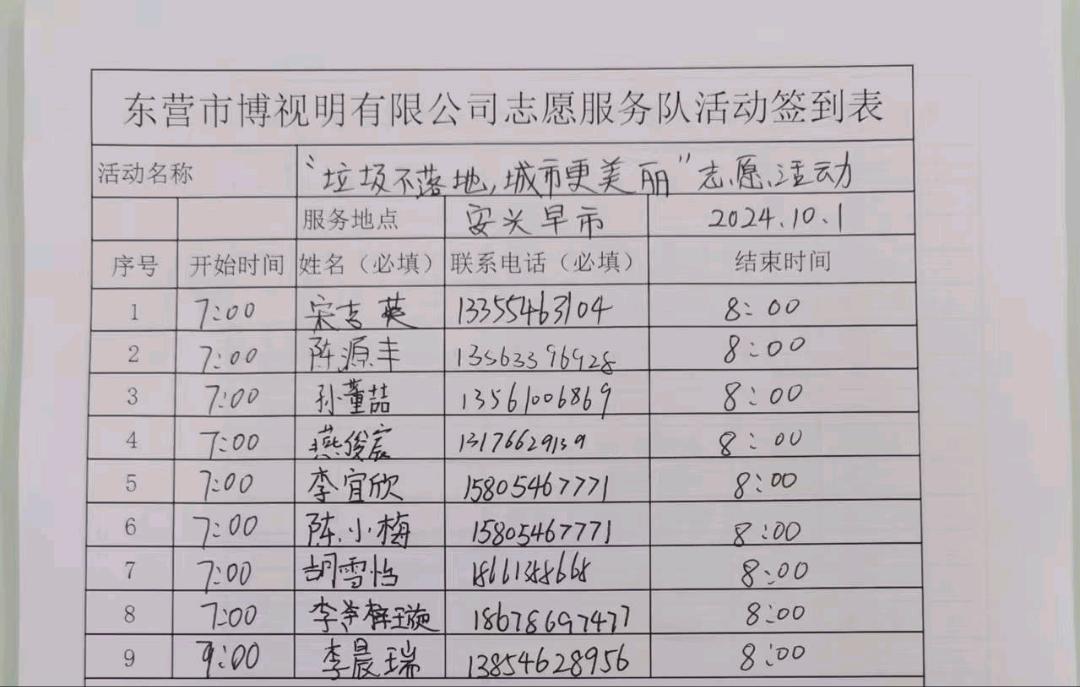 东营市博视明有限公司志愿服务队活动签到表
活动名称 “垃圾不落地,城市更美丽”志愿活动
服务地点 安兴早市 2024.10.1
序号 开始时间 姓名（必填） 联系电话（必填） 结束时间
1 7:00 宋吉英 13355463104 8:00
2 7:00 陈源丰 13563396928 8:00
3 7:00 孙董喆 13561006869 8:00
4 7:00 燕俊宸 8:00
5 7:00 李宜欣 15805467771 8:00
6 7:00 陈小梅 15805467771 8:00
7 7:00 胡雪怡 8:00
8 7:00 18678697477 8:00
9 9:00 李晨瑞 13854628956 8:00